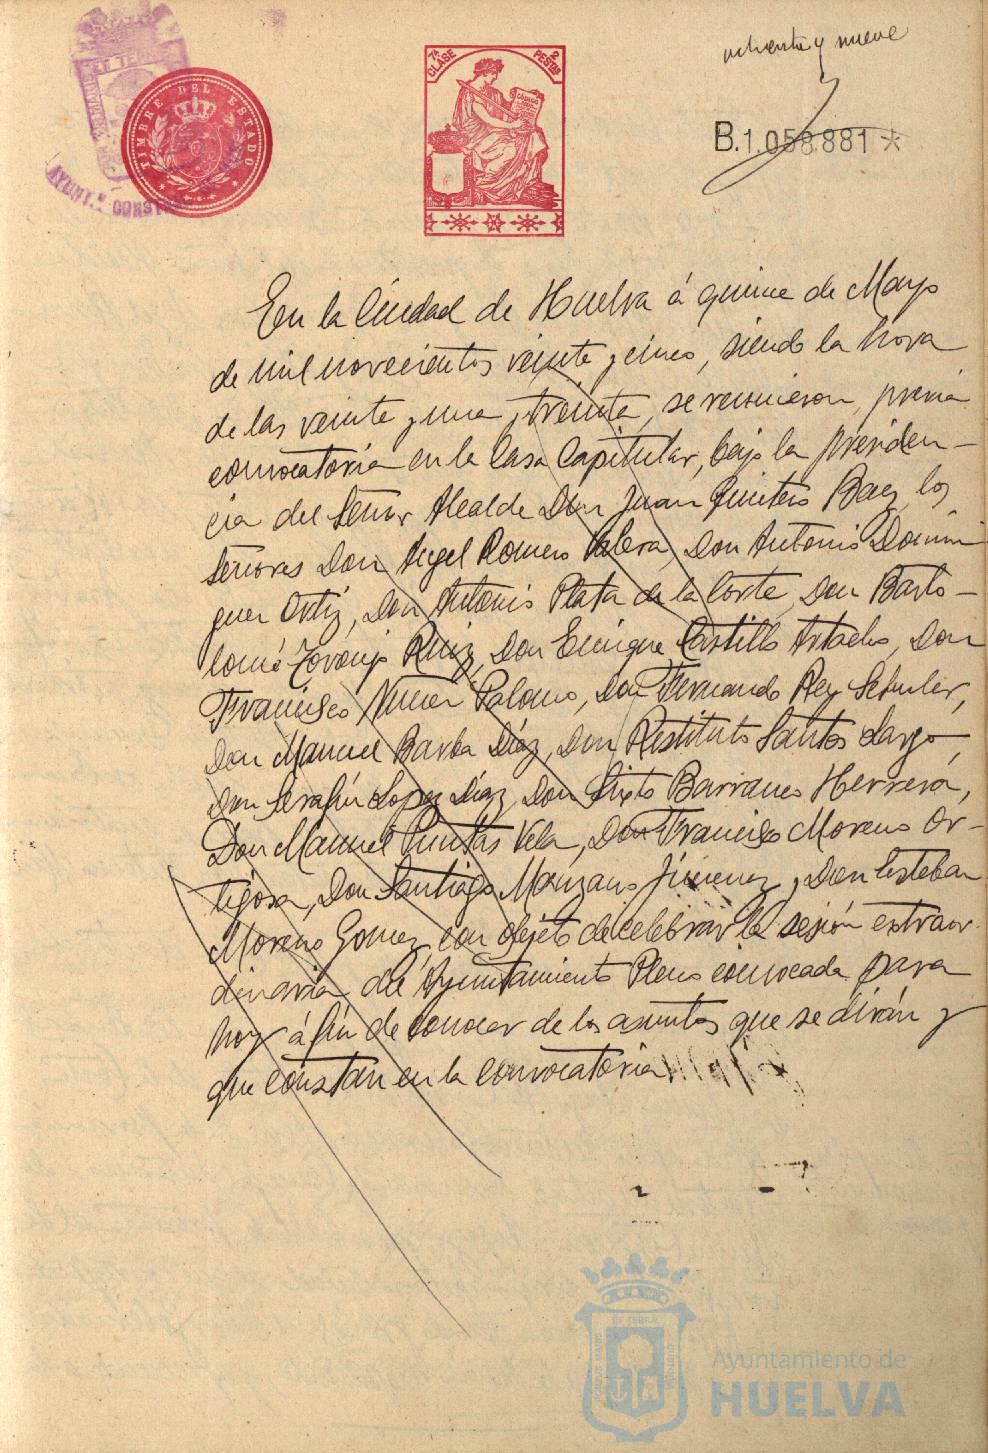 ochenta y nueve
7ª CLASE
2 PESETAS
TIMBRE DEL ESTADO
B.1.058.881 *
AYUNT.º CONST
En la Ciudad de Huelva á quince de Mayo
de mil novecientos veinte y cinco, siendo la hora
de las veinte y una y treinta, se reunieron, previa
convocatoria en la Casa Capitular, bajo la presiden-
cia del Señor Alcalde Don Juan Quintero Baez, los
Señores Don Angel Romero Valera, Don Antonio Domin
guez Ortiz, Don Antonio Plata de la Corte, Don Barto-
lomé Toronjo Ruiz, Don Enrique Castillo Artacho, Don
Francisco Nuñez Palomo, Don Fernando Rey Schuler,
Don Manuel Barba Diaz, Don Restituto Santos Largo,
Don Serafin Lopez Diaz, Don Sixto Barranco Herrera,
Don Manuel Puntas Vela, Don Francisco Moreno Or-
tigosa, Don Santiago Manzano Jimenez y Don Esteban
Moreno Gomez, con objeto de celebrar la sesión extraor
dinaria del Ayuntamiento Pleno convocada para
hoy á fin de conocer de los asuntos que se dirán y
que constan en la convocatoria
Ayuntamiento de
HUELVA